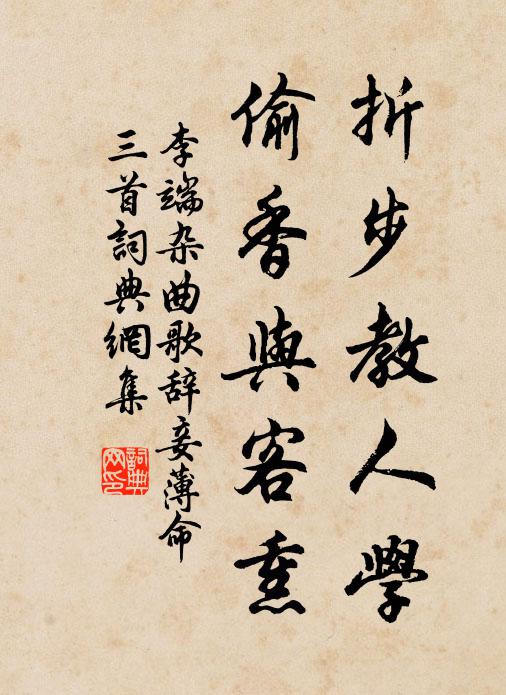 折步教人學
偷香與客熏
李端杂曲歌辞妾薄命
三首詞典網集
詞典
网印